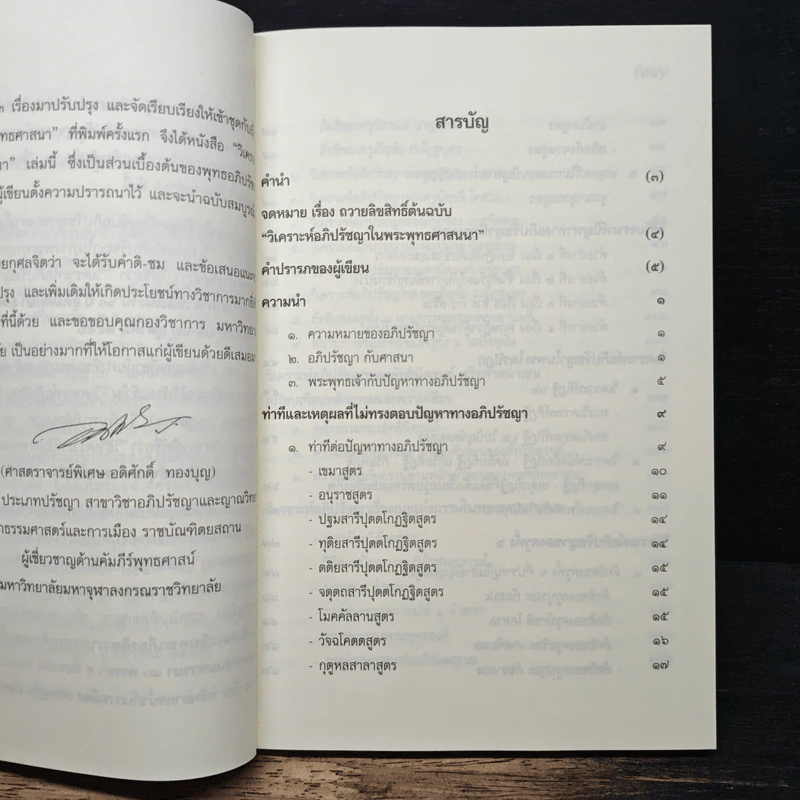 ๓ เรื่องมาปรับปรุง และจัดเรียบเรียงให้เข้าชุดกัน
พุทธศาสนา” ที่พิมพ์ครั้งแรก จึงได้หนังสือ “วิเครา
เล่มนี้ ซึ่งเป็นส่วนเบื้องต้นของพุทธอภิปรัช
ผู้เขียนตั้งความปรารถนาไว้ และจะนำฉบับสมบูรณ์
ยกุศลจิตว่า จะได้รับคำติ-ชม และข้อเสนอแนะ
ปรุง และเพิ่มเติมให้เกิดประโยชน์ทางวิชาการมาก
ที่นี้ด้วย และขอขอบคุณกองวิชาการ มหาวิทยา
ัย เป็นอย่างมากที่ให้โอกาสแก่ผู้เขียนด้วยดีเสมอ
(ศาสตราจารย์พิเศษ อดิศักดิ์ ทองบุญ)
ประเภทปรัชญา สาขาวิชาอภิปรัชญาและญาณวิทย
ธรรมศาสตร์และการเมือง ราชบัณฑิตยสถาน
ผู้เชี่ยวชาญด้านคัมภีร์พุทธศาสน์
มหาวิทยาลัยมหาจุฬาลงกรณราชวิทยาลัย
สารบัญ
คำนำ (๓)
จดหมาย เรื่อง ถวายลิขสิทธิ์ต้นฉบับ
“วิเคราะห์อภิปรัชญาในพระพุทธศาสนนา” (๔)
คำปรารภของผู้เขียน (๕)
ความนำ ๑
๑. ความหมายของอภิปรัชญา ๑
๒. อภิปรัชญา กับศาสนา ๑
๓. พระพุทธเจ้ากับปัญหาทางอภิปรัชญา ๕
ท่าทีและเหตุผลที่ไม่ทรงตอบปัญหาทางอภิปรัชญา ๙
๑. ท่าทีต่อปัญหาทางอภิปรัชญา ๙
- เขมาสูตร ๑๐
- อนุราชสูตร ๑๑
- ปฐมสารีปุตตโกฏฐิตสูตร ๑๔
- ทุติยสารีปุตตโกฏฐิตสูตร ๑๔
- ตติยสารีปุตตโกฏฐิตสูตร ๑๕
- จตุตถสารีปุตตโกฏฐิตสูตร ๑๕
- โมคคัลลานสูตร ๑๕
- วัจฉโคตตสูตร ๑๖
- กุตูหลสาลาสูตร ๑๗